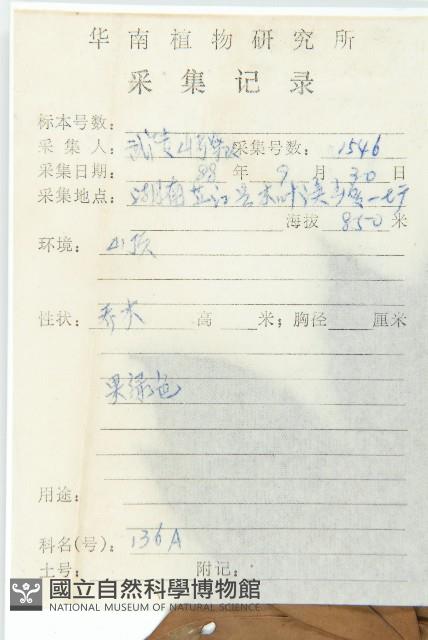 华南植物研究所
采集记录
标本号数：
采集人：武陵山 采集号数：1546
采集日期：88年9月30日
采集地点：湖南芷江县
海拔 850 米
环境：山顶
性状：乔木 高 米；胸径 厘米
果绿色
用途：
科名(号)：136A
土号： 附记：
國立自然科學博物館
NATIONAL MUSEUM OF NATURAL SCIENCE